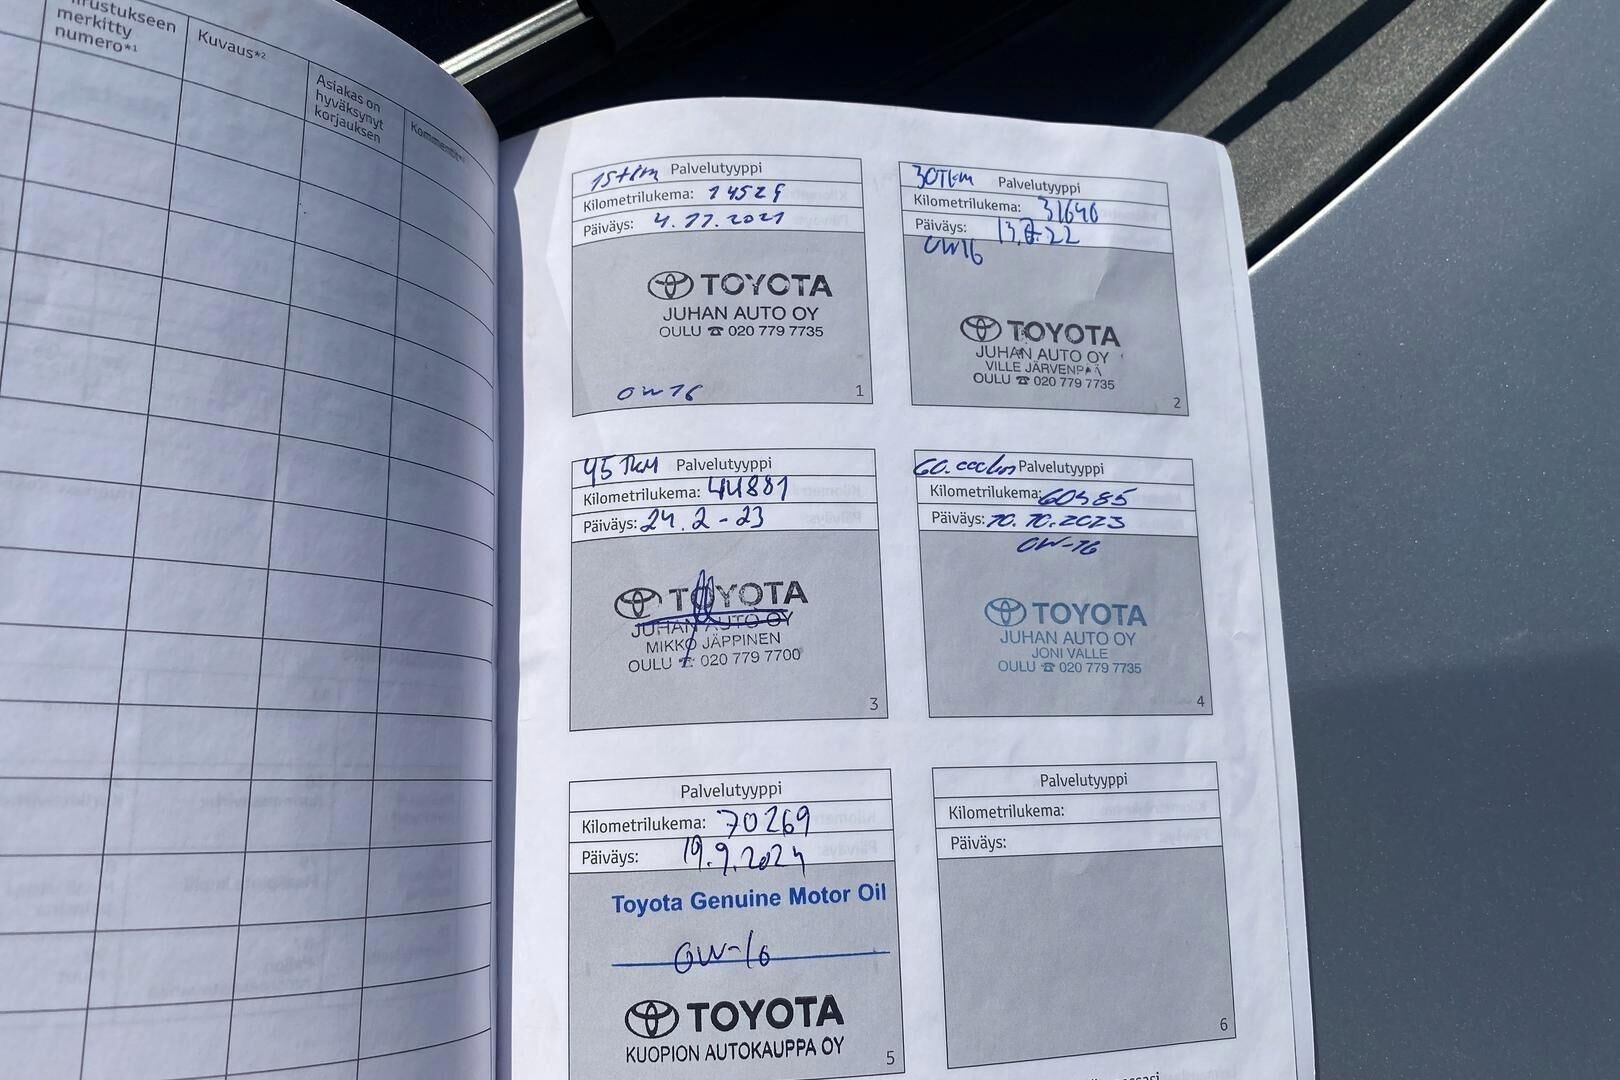 merkitty
numero*¹
Kuvaus*²
Asiakas on
hyväksynyt
korjauksen
Palvelutyyppi
Kilometrilukema:
Päiväys: 4.11.2021
TOYOTA
JUHAN AUTO OY
OULU ☎ 020 779 7735
OW16
1
30Tkm Palvelutyyppi
Kilometrilukema: 31640
Päiväys:
OW16
TOYOTA
JUHAN AUTO OY
VILLE JÄRVENPÄÄ
OULU ☎ 020 779 7735
2
45 Tkm Palvelutyyppi
Kilometrilukema: 44881
Päiväys: 24.2-23
TOYOTA
JUHAN AUTO OY
MIKKO JÄPPINEN
OULU ☎ 020 779 7700
3
Palvelutyyppi
Kilometrilukema:
Päiväys: 10.10.2023
OW-16
TOYOTA
JUHAN AUTO OY
JONI VALLE
OULU ☎ 020 779 7735
4
Palvelutyyppi
Kilometrilukema: 70269
Päiväys: 19.9.2024
Toyota Genuine Motor Oil
OW-16
TOYOTA
KUOPION AUTOKAUPPA OY
5
Palvelutyyppi
Kilometrilukema:
Päiväys:
6